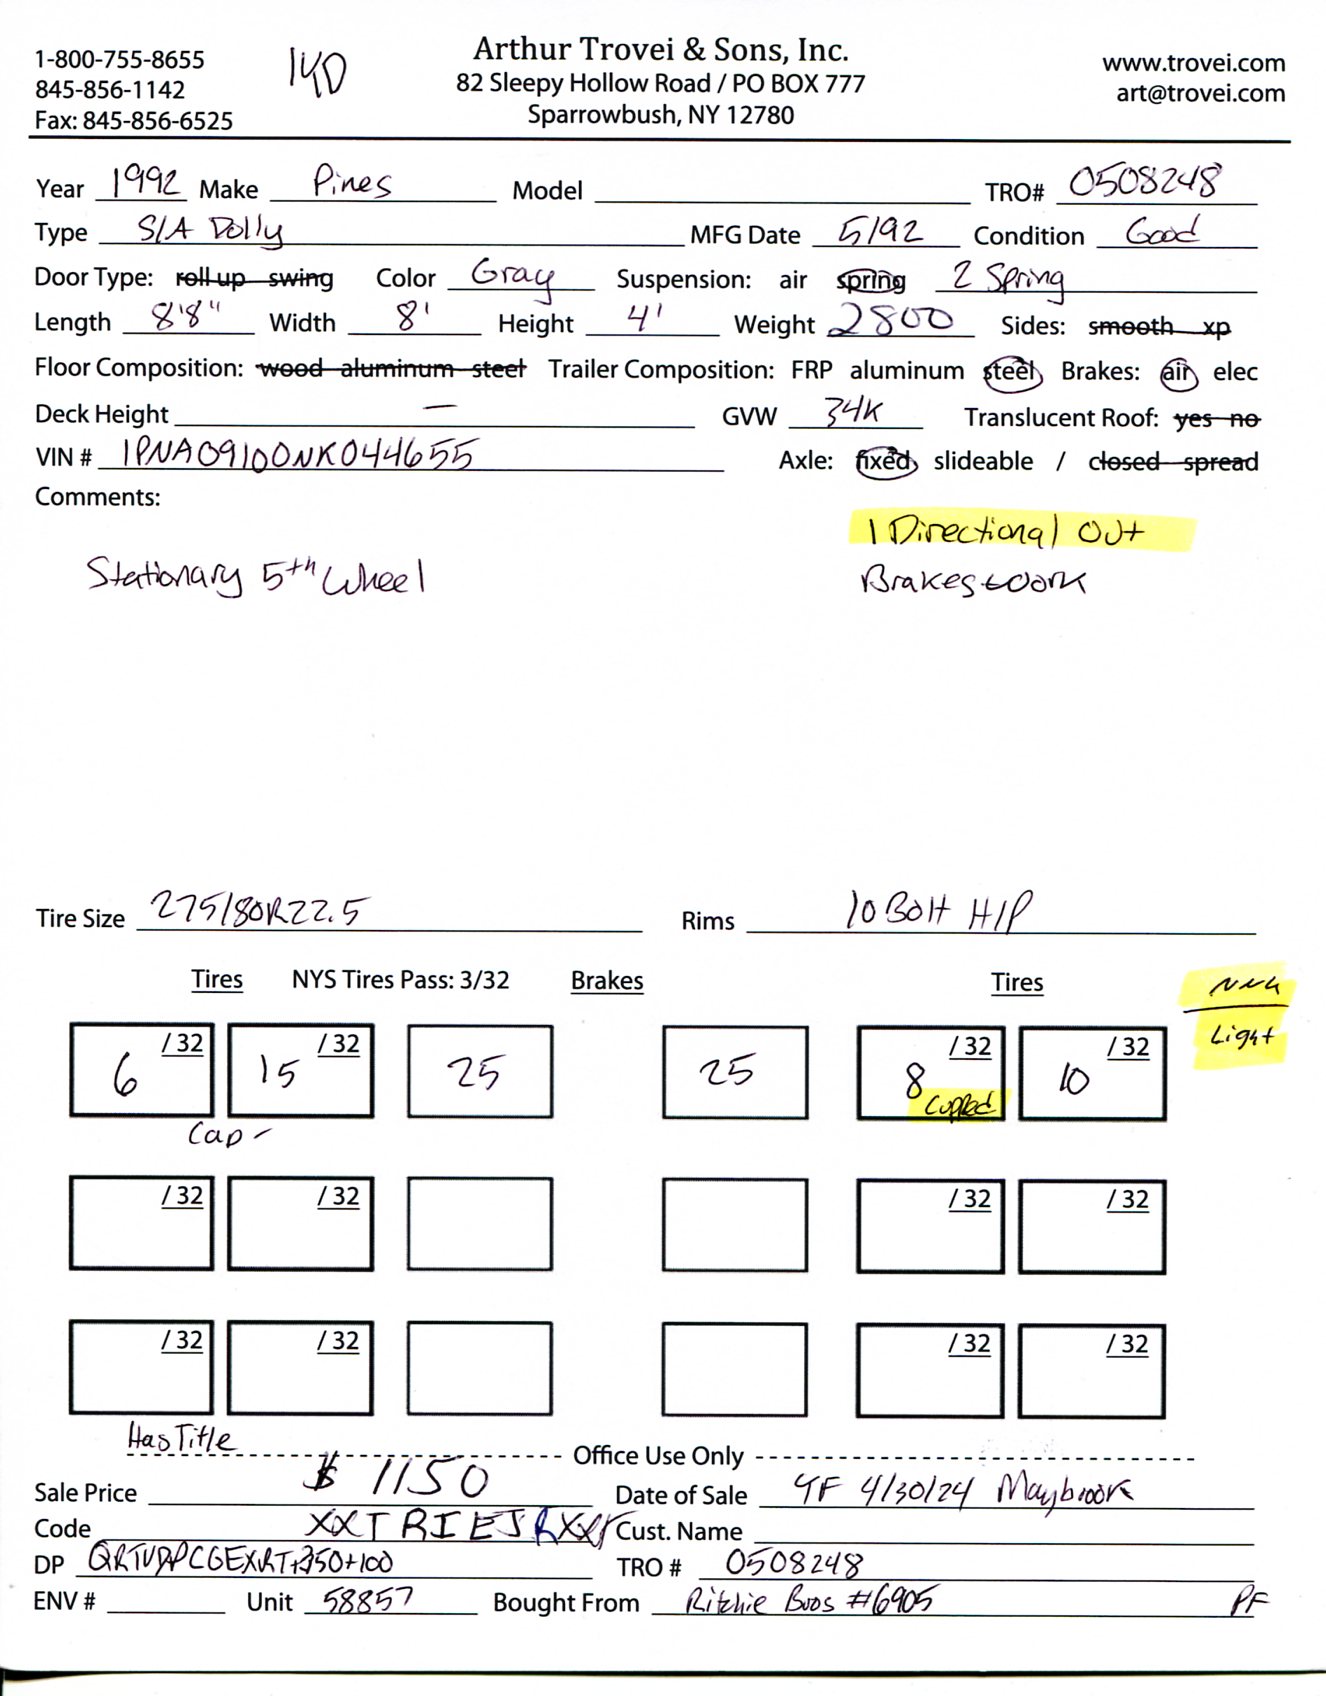 1-800-755-8655
845-856-1142
Fax: 845-856-6525
Arthur Trovei & Sons, Inc.
82 Sleepy Hollow Road / PO BOX 777
Sparrowbush, NY 12780
www.trovei.com
art@trovei.com
Year 1992 Make Pines Model TRO# 0508248
Type S/A Dolly MFG Date 5/92 Condition Good
Door Type: roll up swing Color Gray Suspension: air spring 2 Spring
Length 8'8" Width 8' Height 4' Weight 2800 Sides: smooth xp
Floor Composition: wood aluminum steel Trailer Composition: FRP aluminum steel Brakes: air elec
Deck Height — GVW 34K Translucent Roof: yes no
VIN # 1PNA09100NK044655 Axle: fixed slideable / closed spread
Comments:
1 Directional Out
Stationary 5th Wheel Brakes work
Tire Size 275/80R22.5 Rims 10 Bolt H/P
Tires NYS Tires Pass: 3/32 Brakes Tires
Light
6 /32 15 /32 25 25 8 /32 Cupped 10 /32
Cap -
/32 /32 /32 /32
/32 /32 /32 /32
Has Title
Office Use Only
Sale Price $ 1150 Date of Sale 4/30/24 Maybrook
Code Cust. Name
DP TRO # 0508248
ENV # Unit 58857 Bought From Ritchie Bros #6905 PF